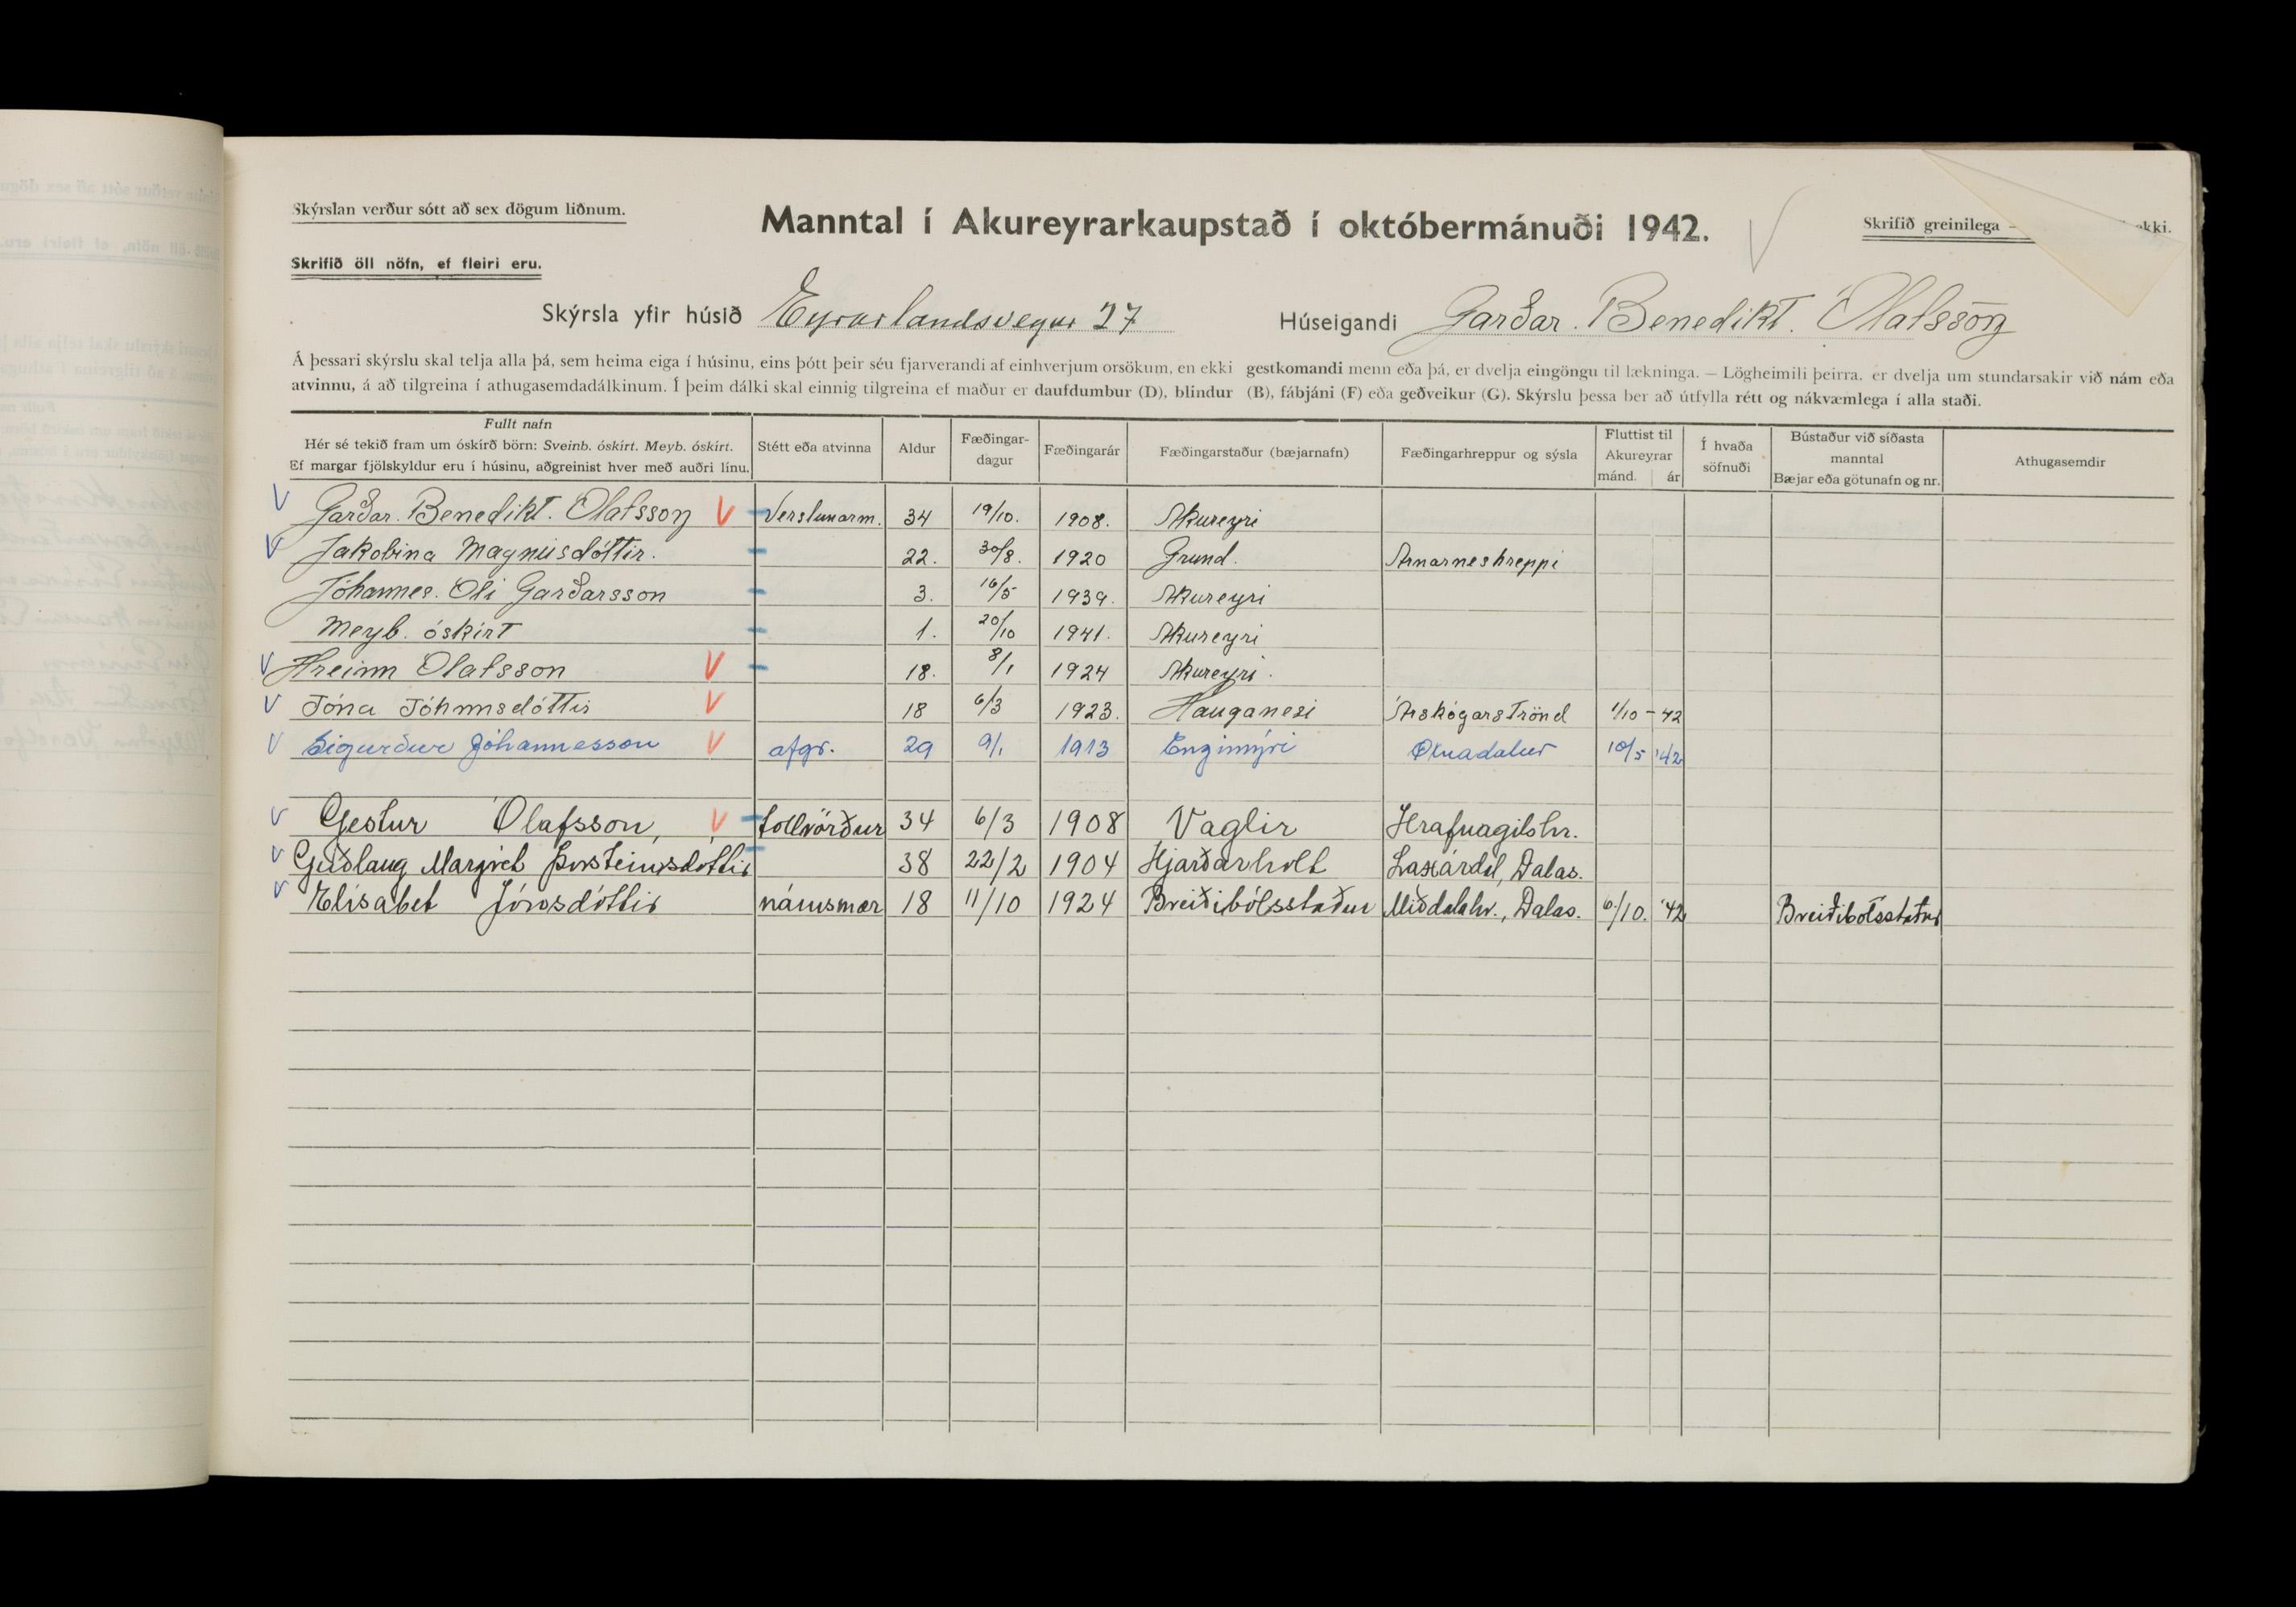 Skýrslan verður sótt að sex dögum liðnum.
Manntal í Akureyrarkaupstað í októbermánuði 1942.
Skrifið greinilega – ekki.
Skrifið öll nöfn, ef fleiri eru.
Skýrsla yfir húsið Eyrarlandsvegur 27 Húseigandi Garðar. Benedikt. Ólafsson
Á þessari skýrslu skal telja alla þá, sem heima eiga í húsinu, eins þótt þeir séu fjarverandi af einhverjum orsökum, en ekki gestkomandi menn eða þá, er dvelja eingöngu til lækninga. — Lögheimili þeirra. er dvelja um stundarsakir við nám eða
atvinnu, á að tilgreina í athugasemdadálkinum. Í þeim dálki skal einnig tilgreina ef maður er daufdumbur (D), blindur (B), fábjáni (F) eða geðveikur (G). Skýrslu þessa ber að útfylla rétt og nákvæmlega í alla staði.
Fullt nafn
Hér sé tekið fram um óskírð börn: Sveinb. óskírt. Meyb. óskírt.
Ef margar fjölskyldur eru í húsinu, aðgreinist hver með auðri línu.
Stétt eða atvinna
Aldur
Fæðingar-
dagur
Fæðingarár
Fæðingarstaður (bæjarnafn)
Fæðingarhreppur og sýsla
Fluttist til
Akureyrar
mánd. ár
Í hvaða
söfnuði
Bústaður við síðasta
manntal
Bæjar eða götunafn og nr.
Athugasemdir
V Garðar. Benedikt. Ólafsson V Verslunarm. 34 19/10. 1908. Akureyri
V Jakobina Magnúsdóttir. 22. 30/8. 1920 Grund. Arnarneshreppi
Jóhannes. Oli Garðarsson 3. 16/5 1939. Akureyri
Meyb. óskírt 1. 20/10 1941. Akureyri
V Hreinn Olafsson V 18. 8/1 1924 Akureyri.
V Jóna Jóhannsdóttir V 18 6/3 1923. Hauganesi Árskógarströnd 1/10 - 42
V Sigurður Jóhannesson V afgr. 29 9/1 1913 Enginmýri Öxnadalur 10/5 '42
V Gestur Ólafsson, V tollvörður 34 6/3 1908 Vaglir Hrafnagilshr.
V Guðlaug Margrét Þorsteinsdóttir 38 22/2 1904 Hjarðarholt Laxárdal, Dalas.
V Elísabet Jónsdóttir námsmær 18 11/10 1924 Breiðibólsstaður Miðdalahr., Dalas. 6/10. '42 Breiðibólsstaður